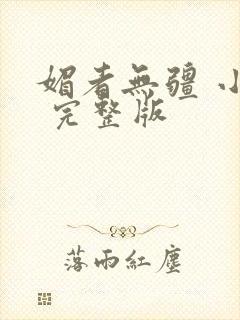 媚者無疆 小
完整版
落雨紅塵